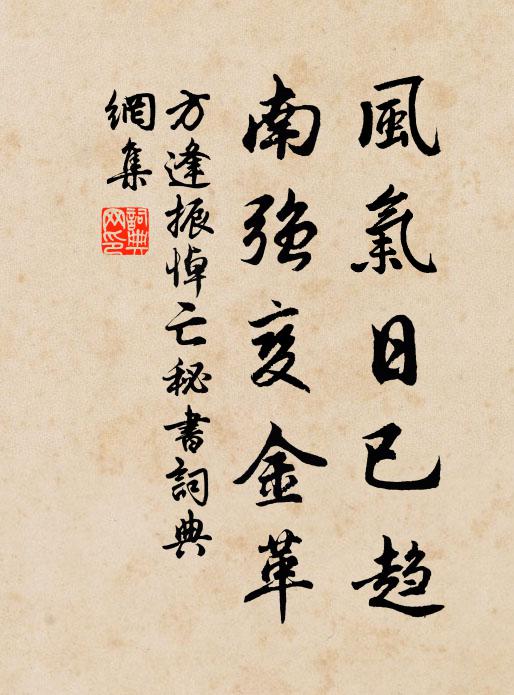 風氣日已趋
南强变金革
方逢振悼亡秘書詞典
網集
詞典網印